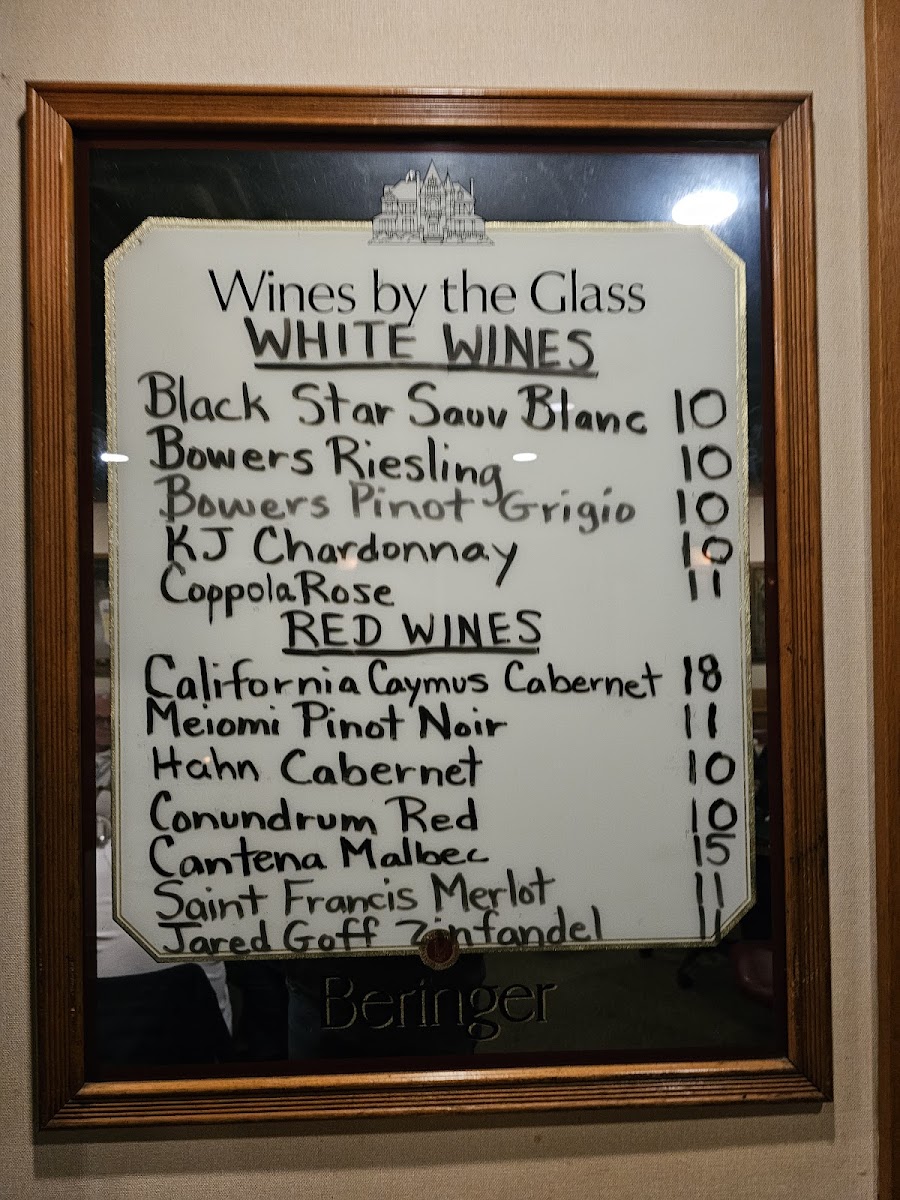 Wines by the Glass
WHITE WINES
Black Star Sauv Blanc 10
Bowers Riesling 10
Bowers Pinot Grigio 10
KJ Chardonnay 10
Coppola Rose 11
RED WINES
California Caymus Cabernet 18
Meiomi Pinot Noir 11
Hahn Cabernet 10
Conundrum Red 10
Cantena Malbec 15
Saint Francis Merlot 11
Jared Goff Zinfandel 11
Beringer